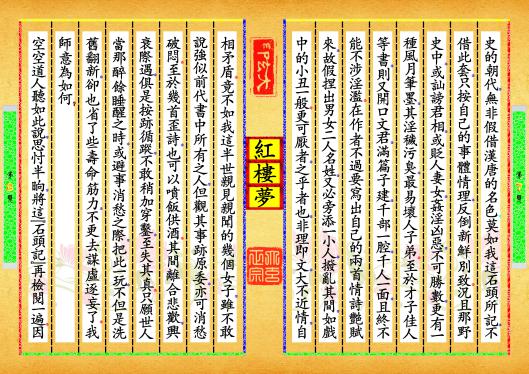 史的朝代無非假借漢唐的名色莫如我這石頭所記不
借此套只按自己的事體情理反倒新鮮別致況且那野
史中或訕謗君相或貶人妻女姦淫凶惡不可勝數更有一
種風月筆墨其淫穢污臭最易壞人子弟至於才子佳人
等書則又開口文君滿篇子建千部一腔千人一面且終不
能不涉淫濫在作者不過要寫出自己的兩首情詩艷賦
來故假捏出男女二人名姓又必旁添一小人撥亂其間如戲
中的小丑一般更可厭者之乎者也非理即文大不近情自
紅樓夢
相矛盾竟不如我這半世親見親聞的幾個女子雖不敢
說強似前代書中所有之人但觀其事跡原委亦可消愁
破悶至於幾首歪詩也可以噴飯供酒其間離合悲歡興
衰際遇俱是按跡循蹤不敢稍加穿鑿至失其真只願世人
當那醉餘睡醒之時或避事消愁之際把此一玩不但是洗
舊翻新卻也省了些壽命筋力不更去謀虛逐妄了我
師意為如何
空空道人聽如此說思忖半晌將這石頭記再檢閱一遍因